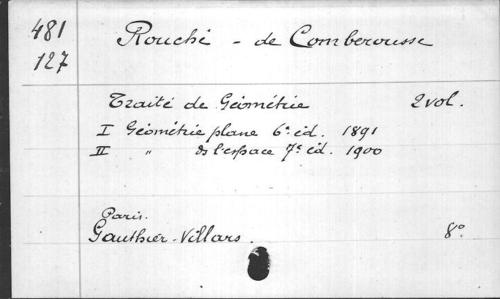 481 Rouché - de Comberousse
127
Traité de Géométrie 2 vol.
I Géométrie plane 6e éd. 1891
II " de l'espace 7e éd. 1900
Paris.
Gauthier-Villars. 8°